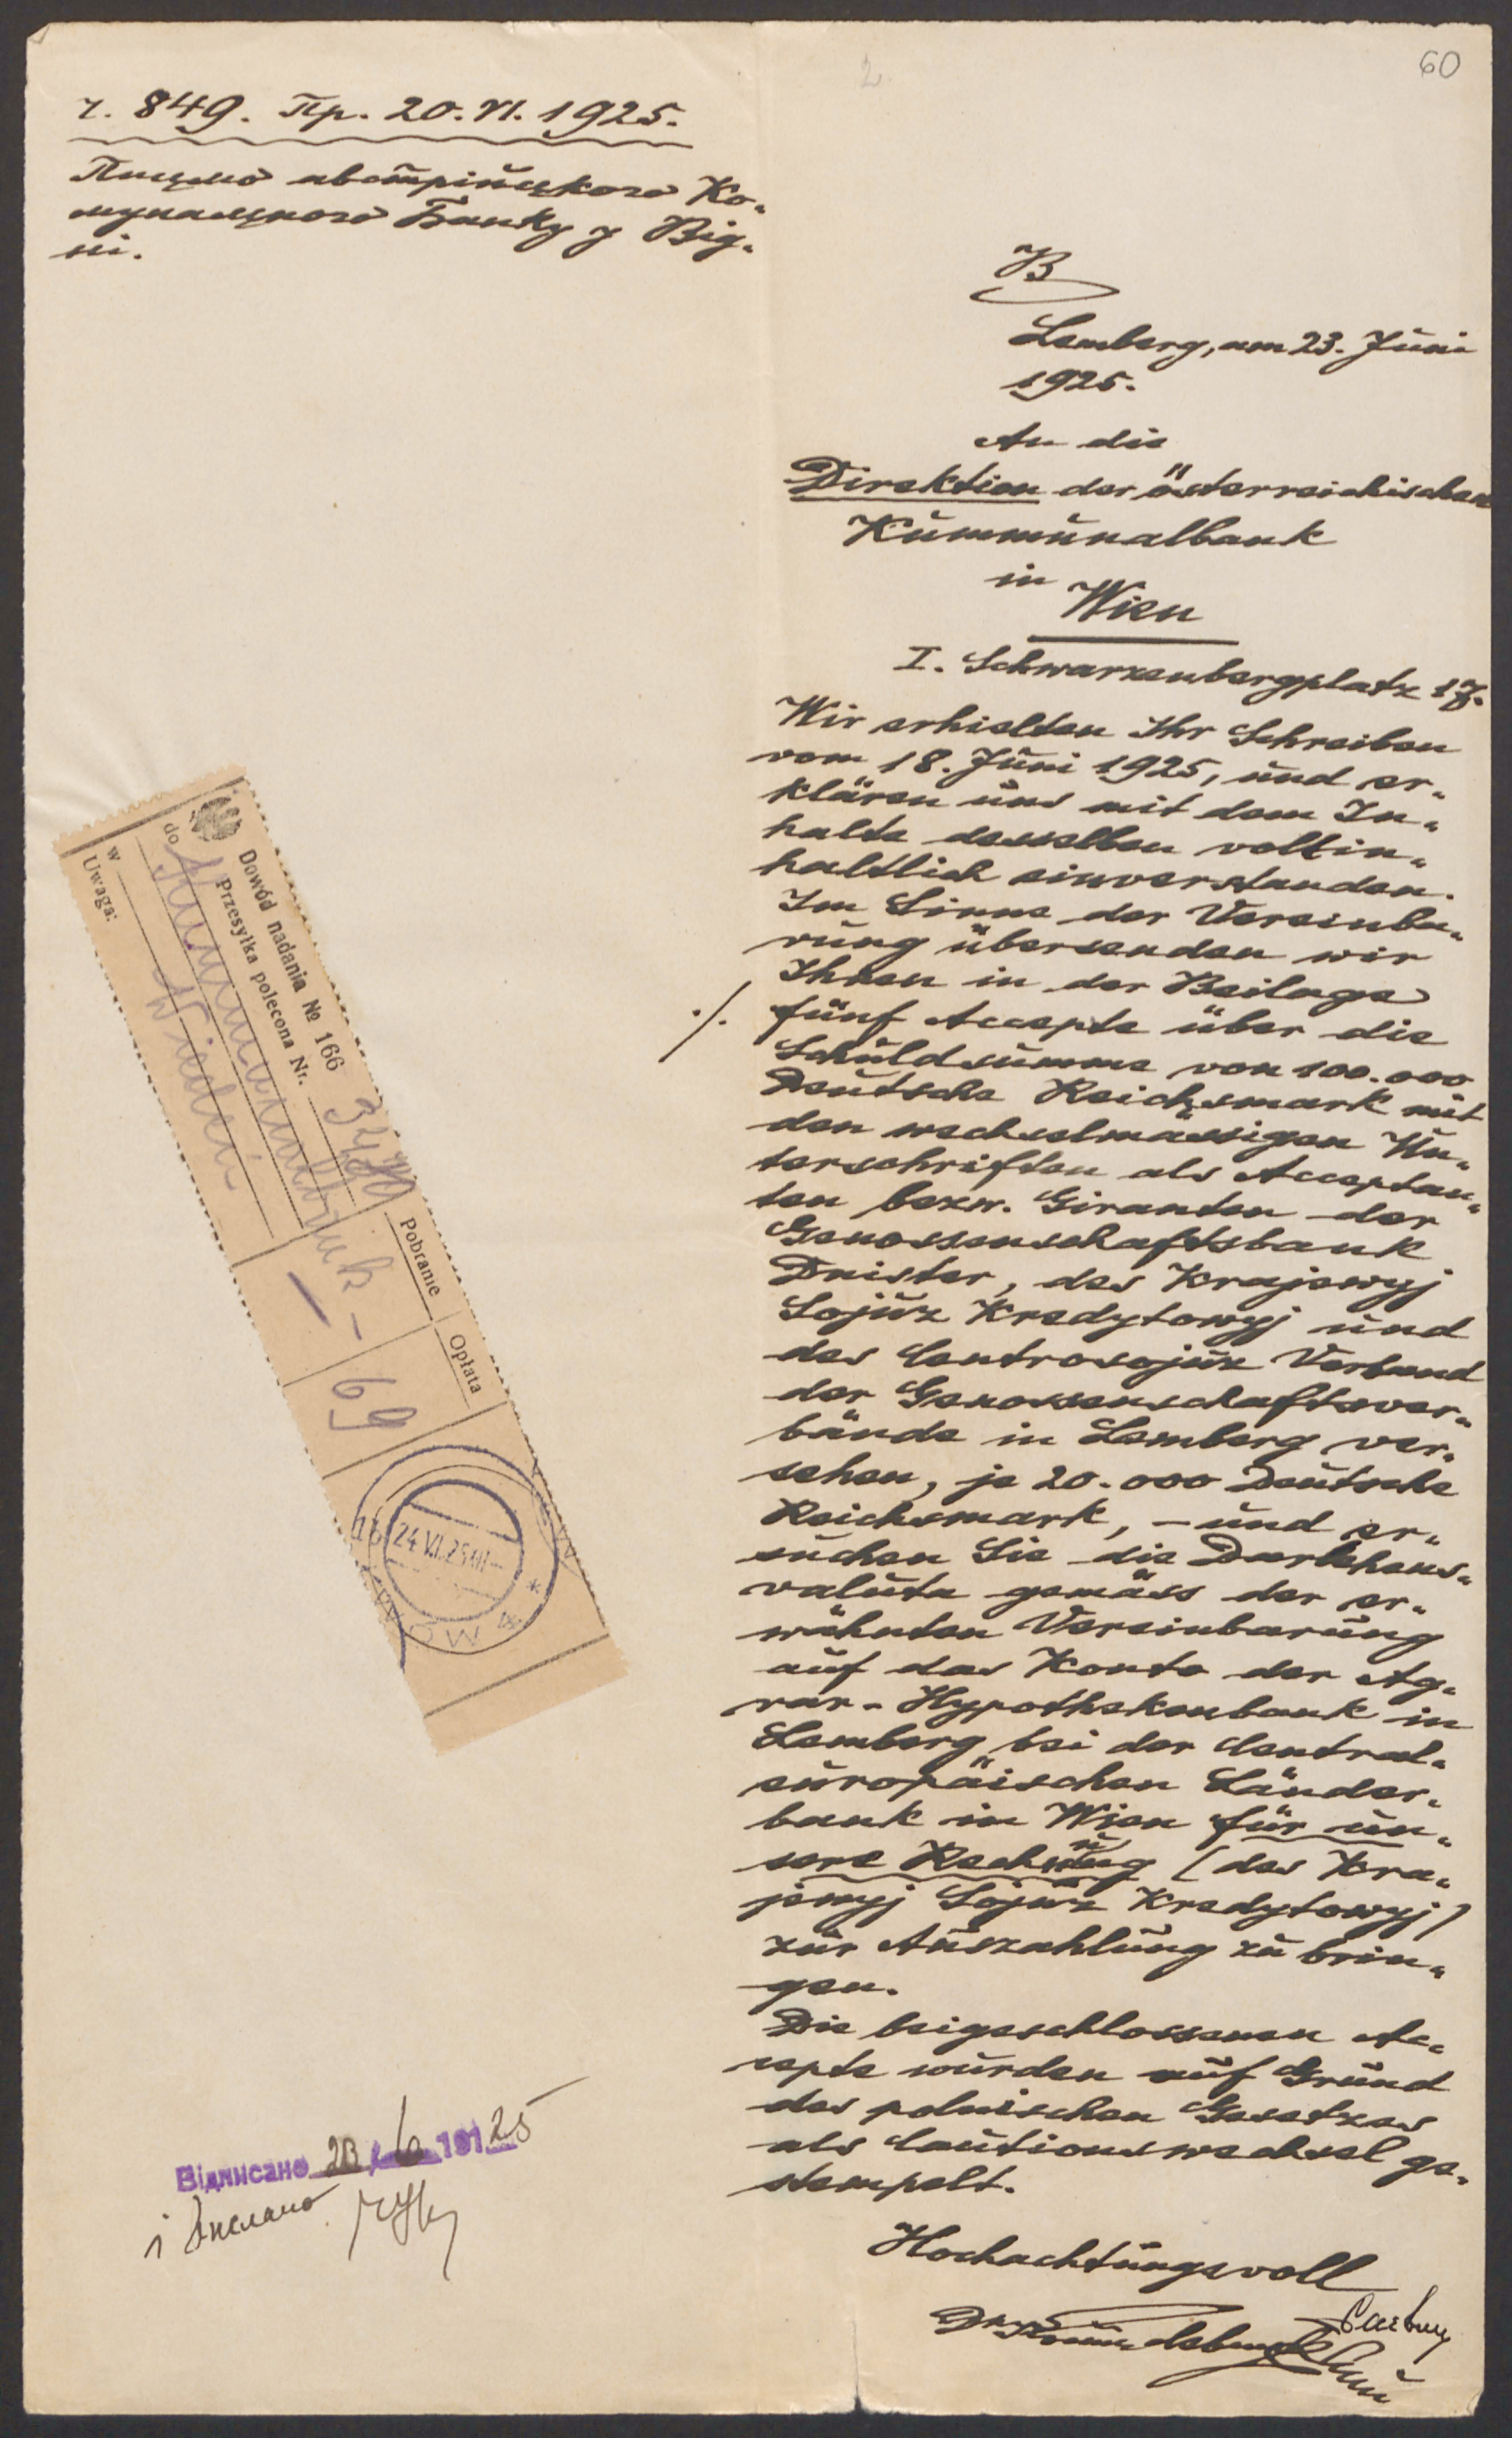 60
2
ч. 849. Пр. 20. VI. 1925.
Письмо австрійського Ко„
мунального Банку у Від„
ні.
B
Lemberg, am 23. Juni
1925.
An die
Direktion der österreichischen
Kummunalbank
in
Wien
I. Schwarzenbergplatz 17.
Wir erhielten Ihr Schreiben
vom 18. Juni 1925, und er„
klären uns mit dem In„
halte desselben vollin„
haltlich einverstanden.
Im Sinne der Vereinba„
rung übersenden wir
Ihnen in der Beilage
./. fünf Accepte über die
Schuldsumme von 100.000
Deutsche Reichsmark mit
den wechselmässigen Un„
terschriften als Acceptan„
ten bezw. Giranten der
Genossenschaftsbank
Dnister, des Krajewyj
Sojuz Kredytowyj und
des Centrosojuz Verband
der Genossenschaftsver„
bände in Lemberg ver„
sehen, je 20.000 Deutsche
Reichsmark, – und er„
suchen Sie die Darlehens„
valuta gemäss der er„
wähnten Vereinbarung
auf das Konto der Ag„
rar - Hypothekenbank in
Lemberg bei der Central„
europäischen Länder„
bank in Wien für un„
sere Rechnung (des Kra„
jewyj Sojuz Kredytowyj)
zur Auszahlung zu brin„
gen.
Die beigeschlossenen Ac„
cepte wurden auf Grund
des polnischen Gesetzes
als Cautionswechsel ge„
stempelt.
Hochachtungsvoll
Dowód nadania № 166
Przesyłka polecona Nr.
do Kummunalbank –
w Wiedeń
Uwaga:
Pobranie
–
Opłata
69
24 VI.25
LWÓW 4
Відписано 23/6 19125
і вислано